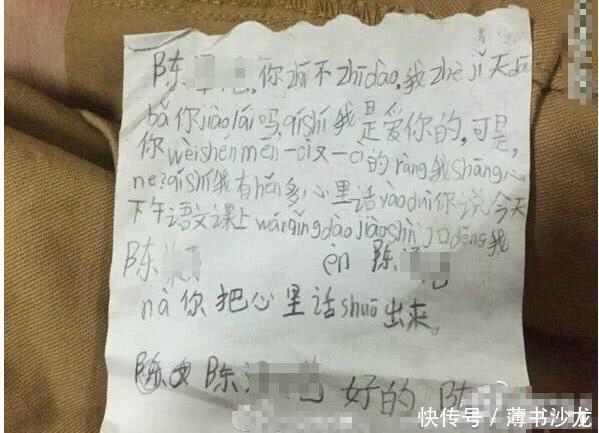 陈 你zhī不zhīdào,我zhè jǐ天dōu
bǎ你jiào lái吗,qíshí我是爱你的,可是,
你wèishénmen一cì又一cì的ràng我shāng心
ne?qíshí我有hěn多心里话yào duì你说今天
下午语文课上wánqǐng dào jiàoshì门口děng我
陈 èn 陈
nà 你把心里话shuō出来。
陈 陈 好的 陈
快传号 / 薄书沙龙